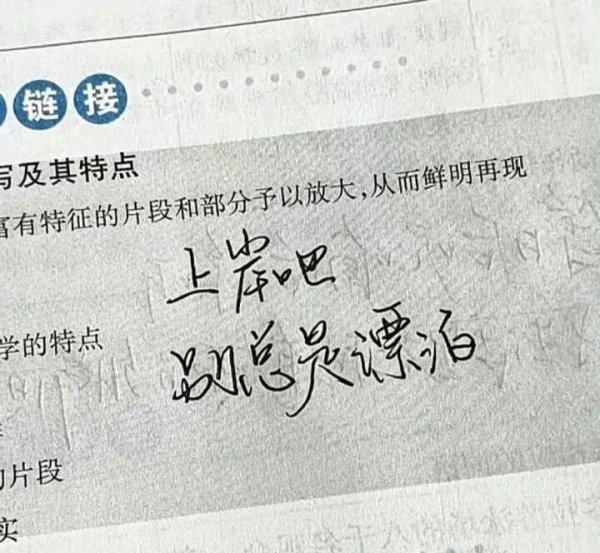 链接
写及其特点
富有特征的片段和部分予以放大,从而鲜明再现
上岸吧
学的特点
别总是漂泊
的片段
实